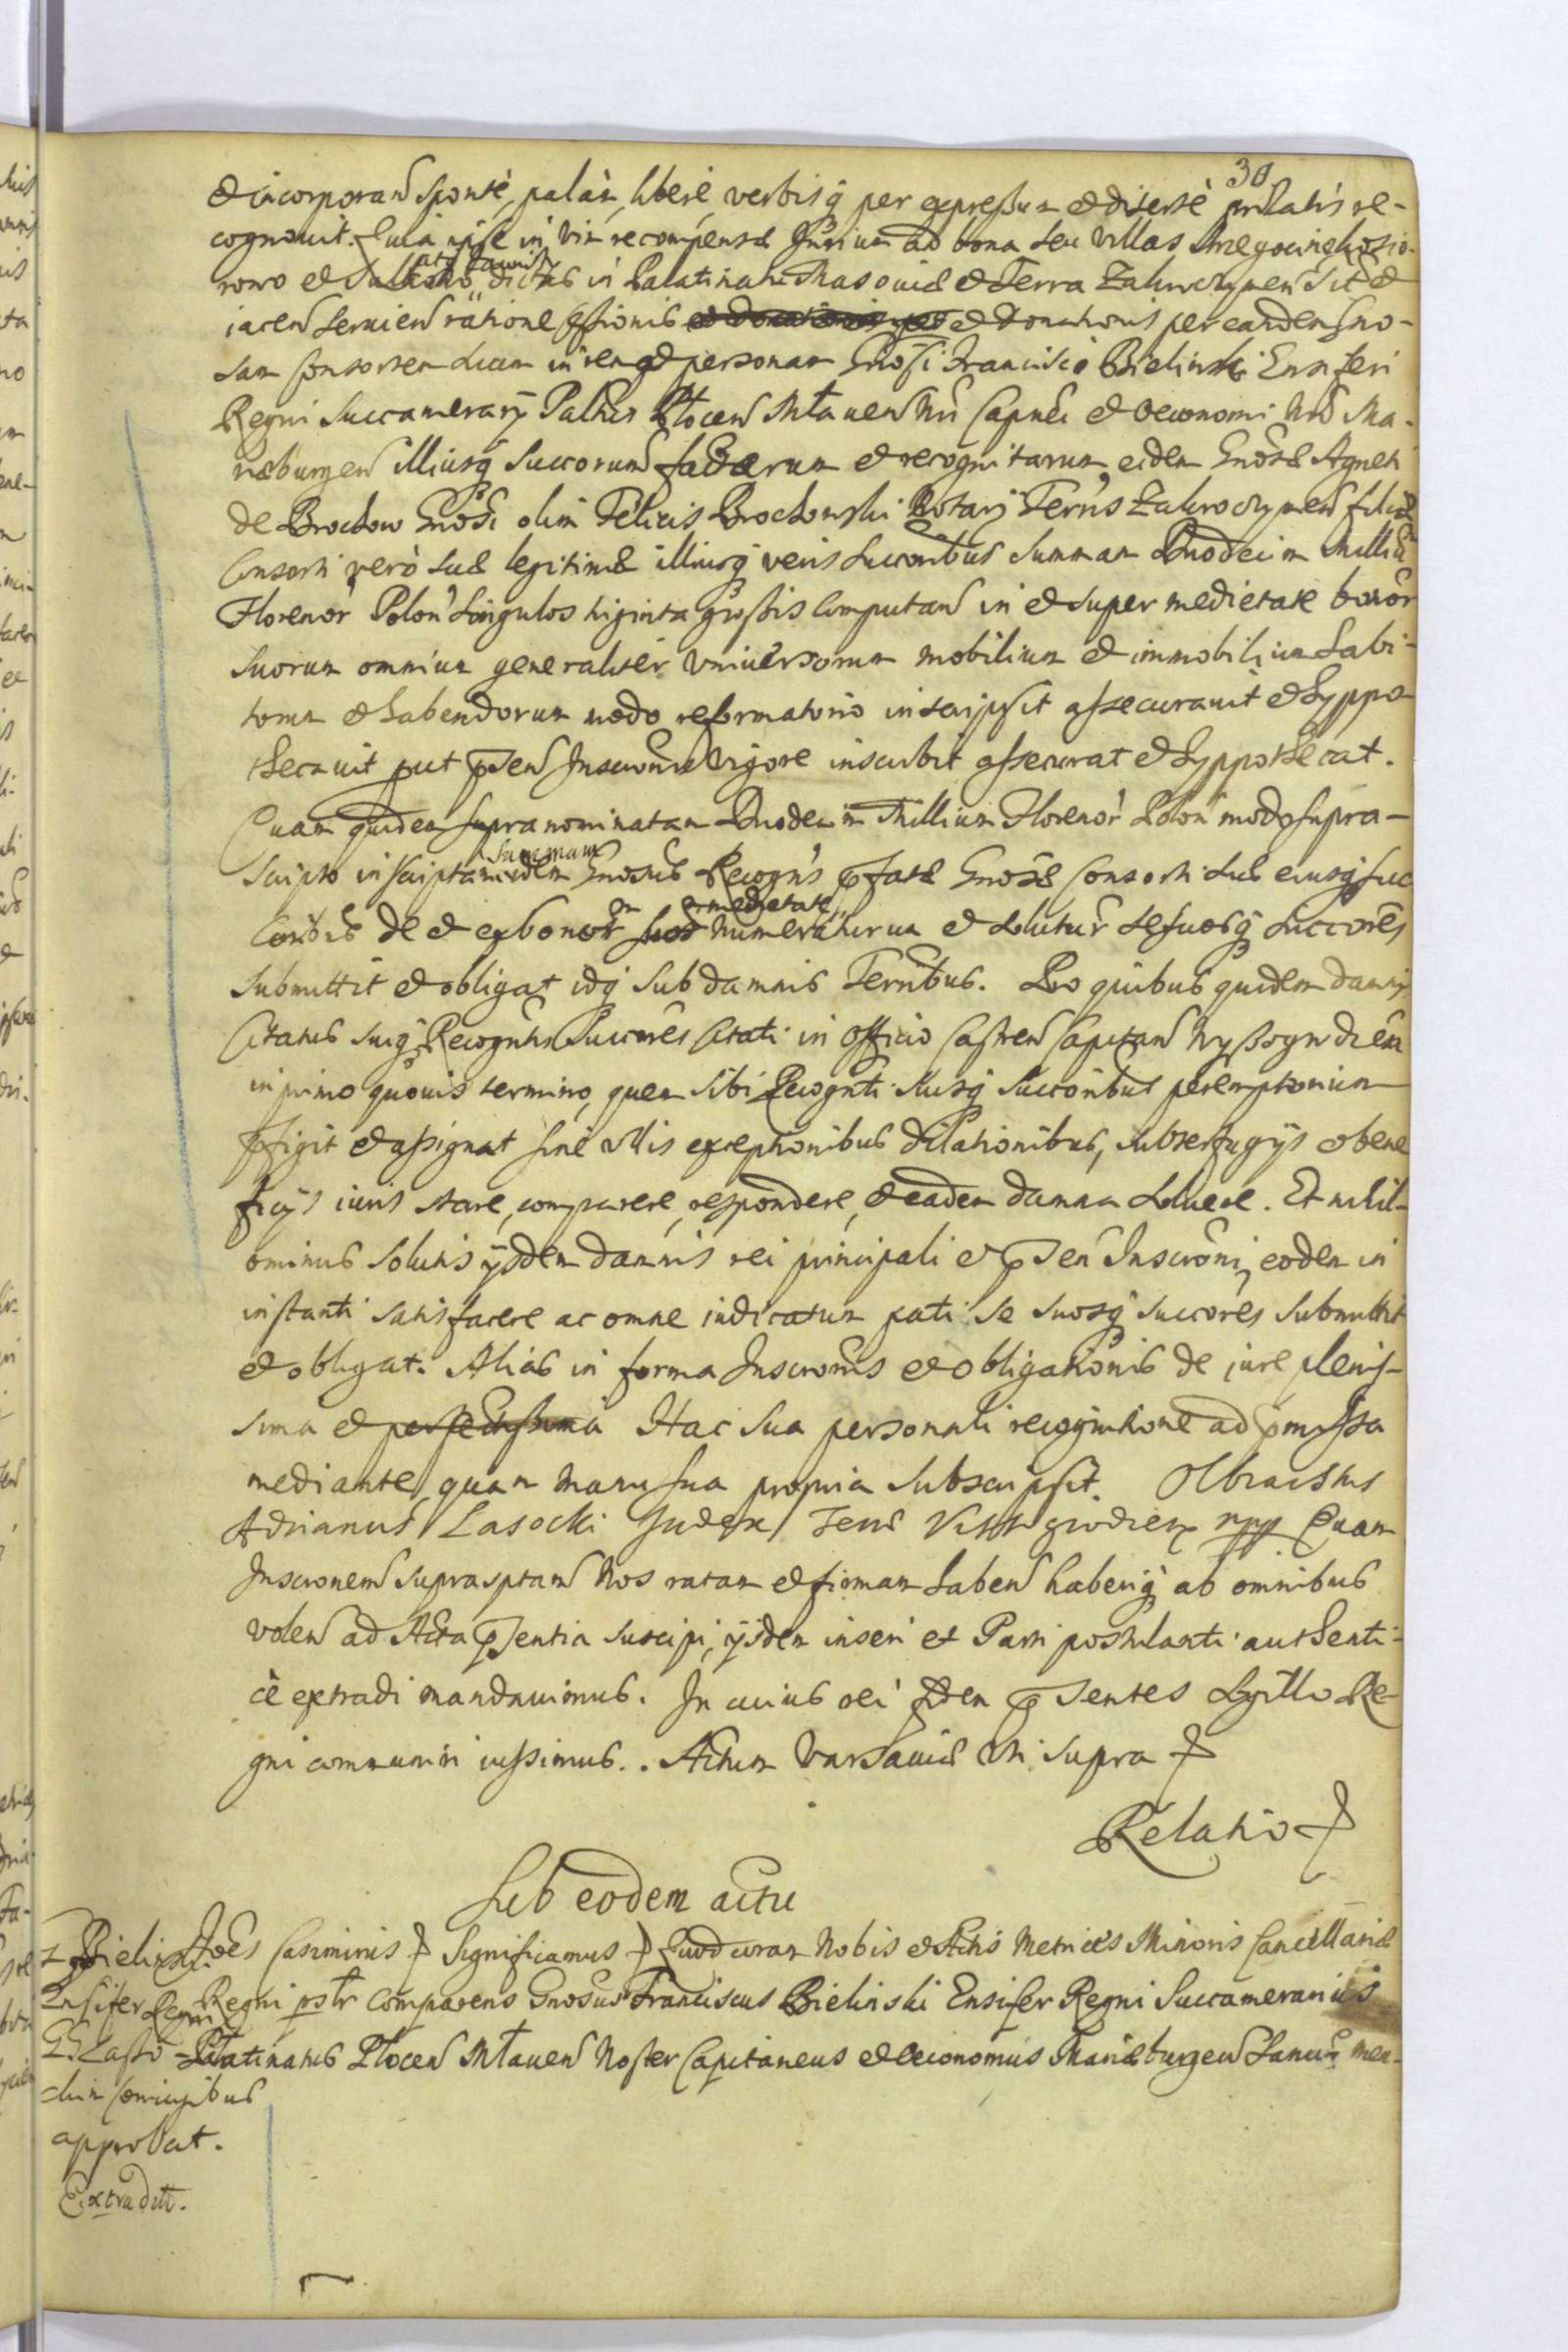 30
et incorporan sponte, palàm, liberè, verbisq per expressum et disertè prolatis re-
cognouit. Quia ipse in vim recompensæ Jurium ad bona seu villas
atq
et dictas in Palatinatu Masouiæ et Terra Zakroczymen sit et
iacen seruien ratione cessionis et donationis per eandem Gno-
sam Consortem suam in rem et personam Gnosi Francisci Bielinski Ensiferi
Regni Succamerarij Palatus Plocen Mlauen Nri Capnei et Oeconomi Nri Ma-
riæburgen illiusq Succorum factarum et recognitarum, eidem Gnosæ Agneti
de Brochow Gnosi olim Felicis Brochowski Notarij Terris Zakroczymen filiæ
Consorti verò suæ legitimæ illiusq veris Succoribus Summam Duodecim Milliū
Florenor Polon Singulos triginta grossis computan in et super medietate bonor
Suorum omnium generaliter vniuersorum mobilium et immobilium habi-
torum et habendorum modo reformatorio inscripsit assecurauit et hyppo-
thecauit put pñsen Inscronis Vigore inscribit assecurat et hyppothecat.
Quam quidem supranominatam Duodecim Millium Florenor Polon modo supra-
Summam
scripto inscriptam idem Gnosus Recogns pfatæ Gnosæ Consorti suæ eiusq suc
medietate
coribs de et ex bonor numeraturum et soluturum se suosq Succores
submittit et obligat idq sub damnis Terribus. Pro quibus quidem damnis
Citatus suiq Recogntis Succores Citati in Officio Castren Capitan Wyssogrodien
in primo quouis termino, quem sibi Recognti suisq succoribus peremptorium
pfigit et assignat sine vllis exceptionibus dilationibus, subterfugijs et bene
ficijs iuris stare, comparere, respondere, et eadem damna soluere. Et nihil-
ominus solutis ijsdem damnis rei principali et pñsen Inscroni, eodem in
instanti satisfacere ac omne iudicatum pati se suosq succores submittit
et obligat. Alias in forma Inscronis et obligationis de iure plenis-
sima et perfectissima Hac sua personali recognitione ad pmissa
mediante, quam manu sua propria subscripsit. Olbrachtus
Adrianus Lasocki Judex Terrs Vissogrodien mpp Quam
Inscronem suprasptam Nos ratam et firmam haben haberiq ab omnibus
volen ad Acta pñsentia suscipi, ijsdem inseri et Parti postulanti authenti-
cè extradi mandauimus. In cuius rei fidem pñsentes Sigillo Re-
gni communiri iussimus. Actum Varsauiæ vti supra
Relatio
Sub eodem actu
Joēs Casimirus Significamus Quod coram Nobis et Actis Metrices Minoris Cancellariæ
Regni pstr comparens Gnosus Franciscus Bielinski Ensifer Regni Succamerarius
Palatinatus Plocen Mlauen Noster Capitaneus et Oeconomus Mariæburgen Sanus men-
Bielinski
Ensifer Regni
coniugibus
approbat.
Extradit.